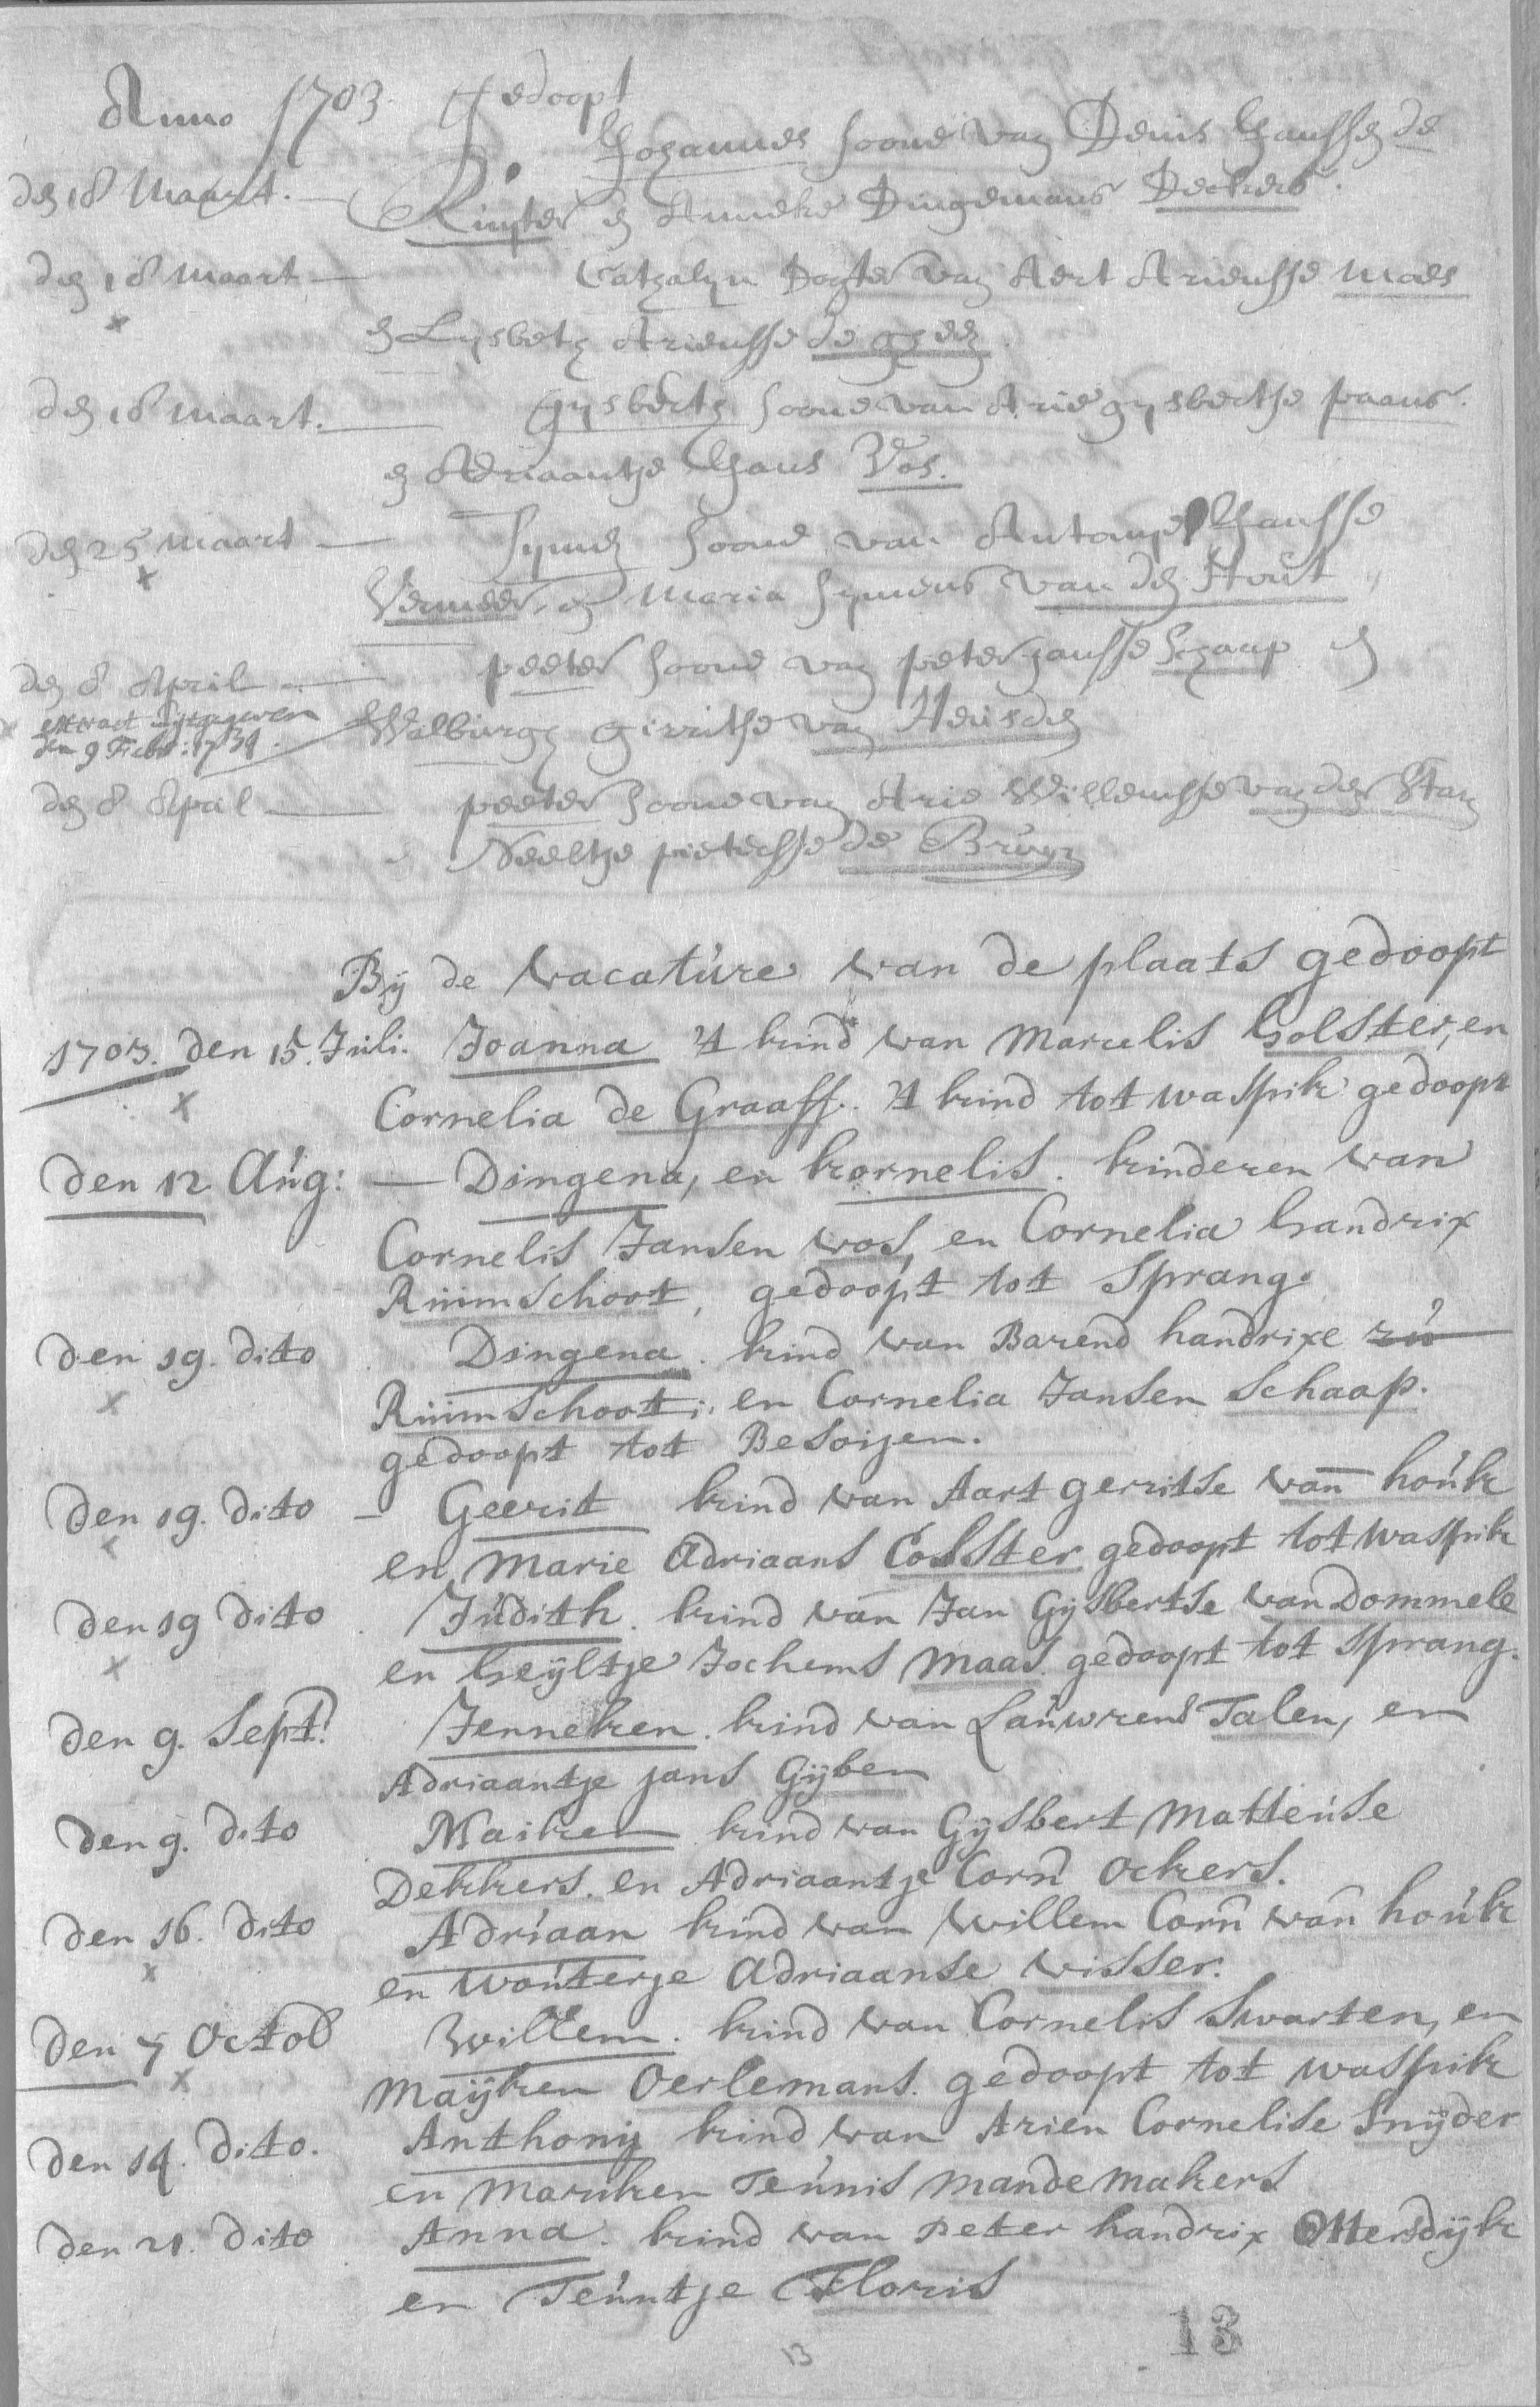 Anno 1703. Gedoopt
Johannes soone van Denis Janssen de
den 18 Maart. Ruyter en Anneke Dingemans Deckers.
den 18 maart Catalyn Dogter van Aert Ariensse Maes
en Lysbeth Ariensse de
den 18 maart. Gysbert soone van Arie gysbertse paans.
en Adriaantje Jans Vos.
den 25 maart Symen soone van Antonye Jansse
Vermeer, en Maria Symens van den Hout
den 8 April peeter soone van peter jansse Schaap en
extract uytgegeven Walburg girritse van Heusden
den 9 Febr: 1739.
den 8 April peeter soone van Arie Willemsse van der Stan
Neeltje pieterse de Bruyn
By de vacature van de plaats gedoopt
1703. den 15. Juli. Joanna 't kind van Marcelis holster, en
Cornelia de Graaff. 't kind tot waspik gedoopt
den 12 Aug: — Dingena, en kornelis. kinderen van
Cornelis Jansen vos, en Cornelia handrix
Ruimschoot, gedoopt tot Sprang.
den 19. dito Dingena. kind van Barend handrixe
Ruimschoot; en Cornelia Jansen Schaap.
gedoopt tot Besoijen.
den 19. dito — Geerit kind van Aart gerritse van houk
en Marie Adriaans Colster gedoopt tot waspik
den 19 dito Judith. kind van Jan Gijsbertse van Dommele
en heyltje Jochems Maas. gedoopt tot Sprang.
den 9. Sept: Jenneken. kind van Lauwrens Talen, en
Adriaantje jans Gijben
den 9. dito Maiken kind van Gijsbert Matteuse
Dekkers. en Adriaantje Corn Ockers.
den 16. dito Adriaan kind van Willem Corn van houk
en Wouterje Adriaanse visser.
den 7 Octob Willem. kind van Cornelis Swarten, en
Maijken Oerlemans. gedoopt tot waspik
den 14. dito. Anthonij kind van Arien Cornelise Snijder
en Mariken Teunis Mandemakers
den 21. dito Anna. kind van Peter handrix Ottersdijk
en Teuntje Floris
13
13